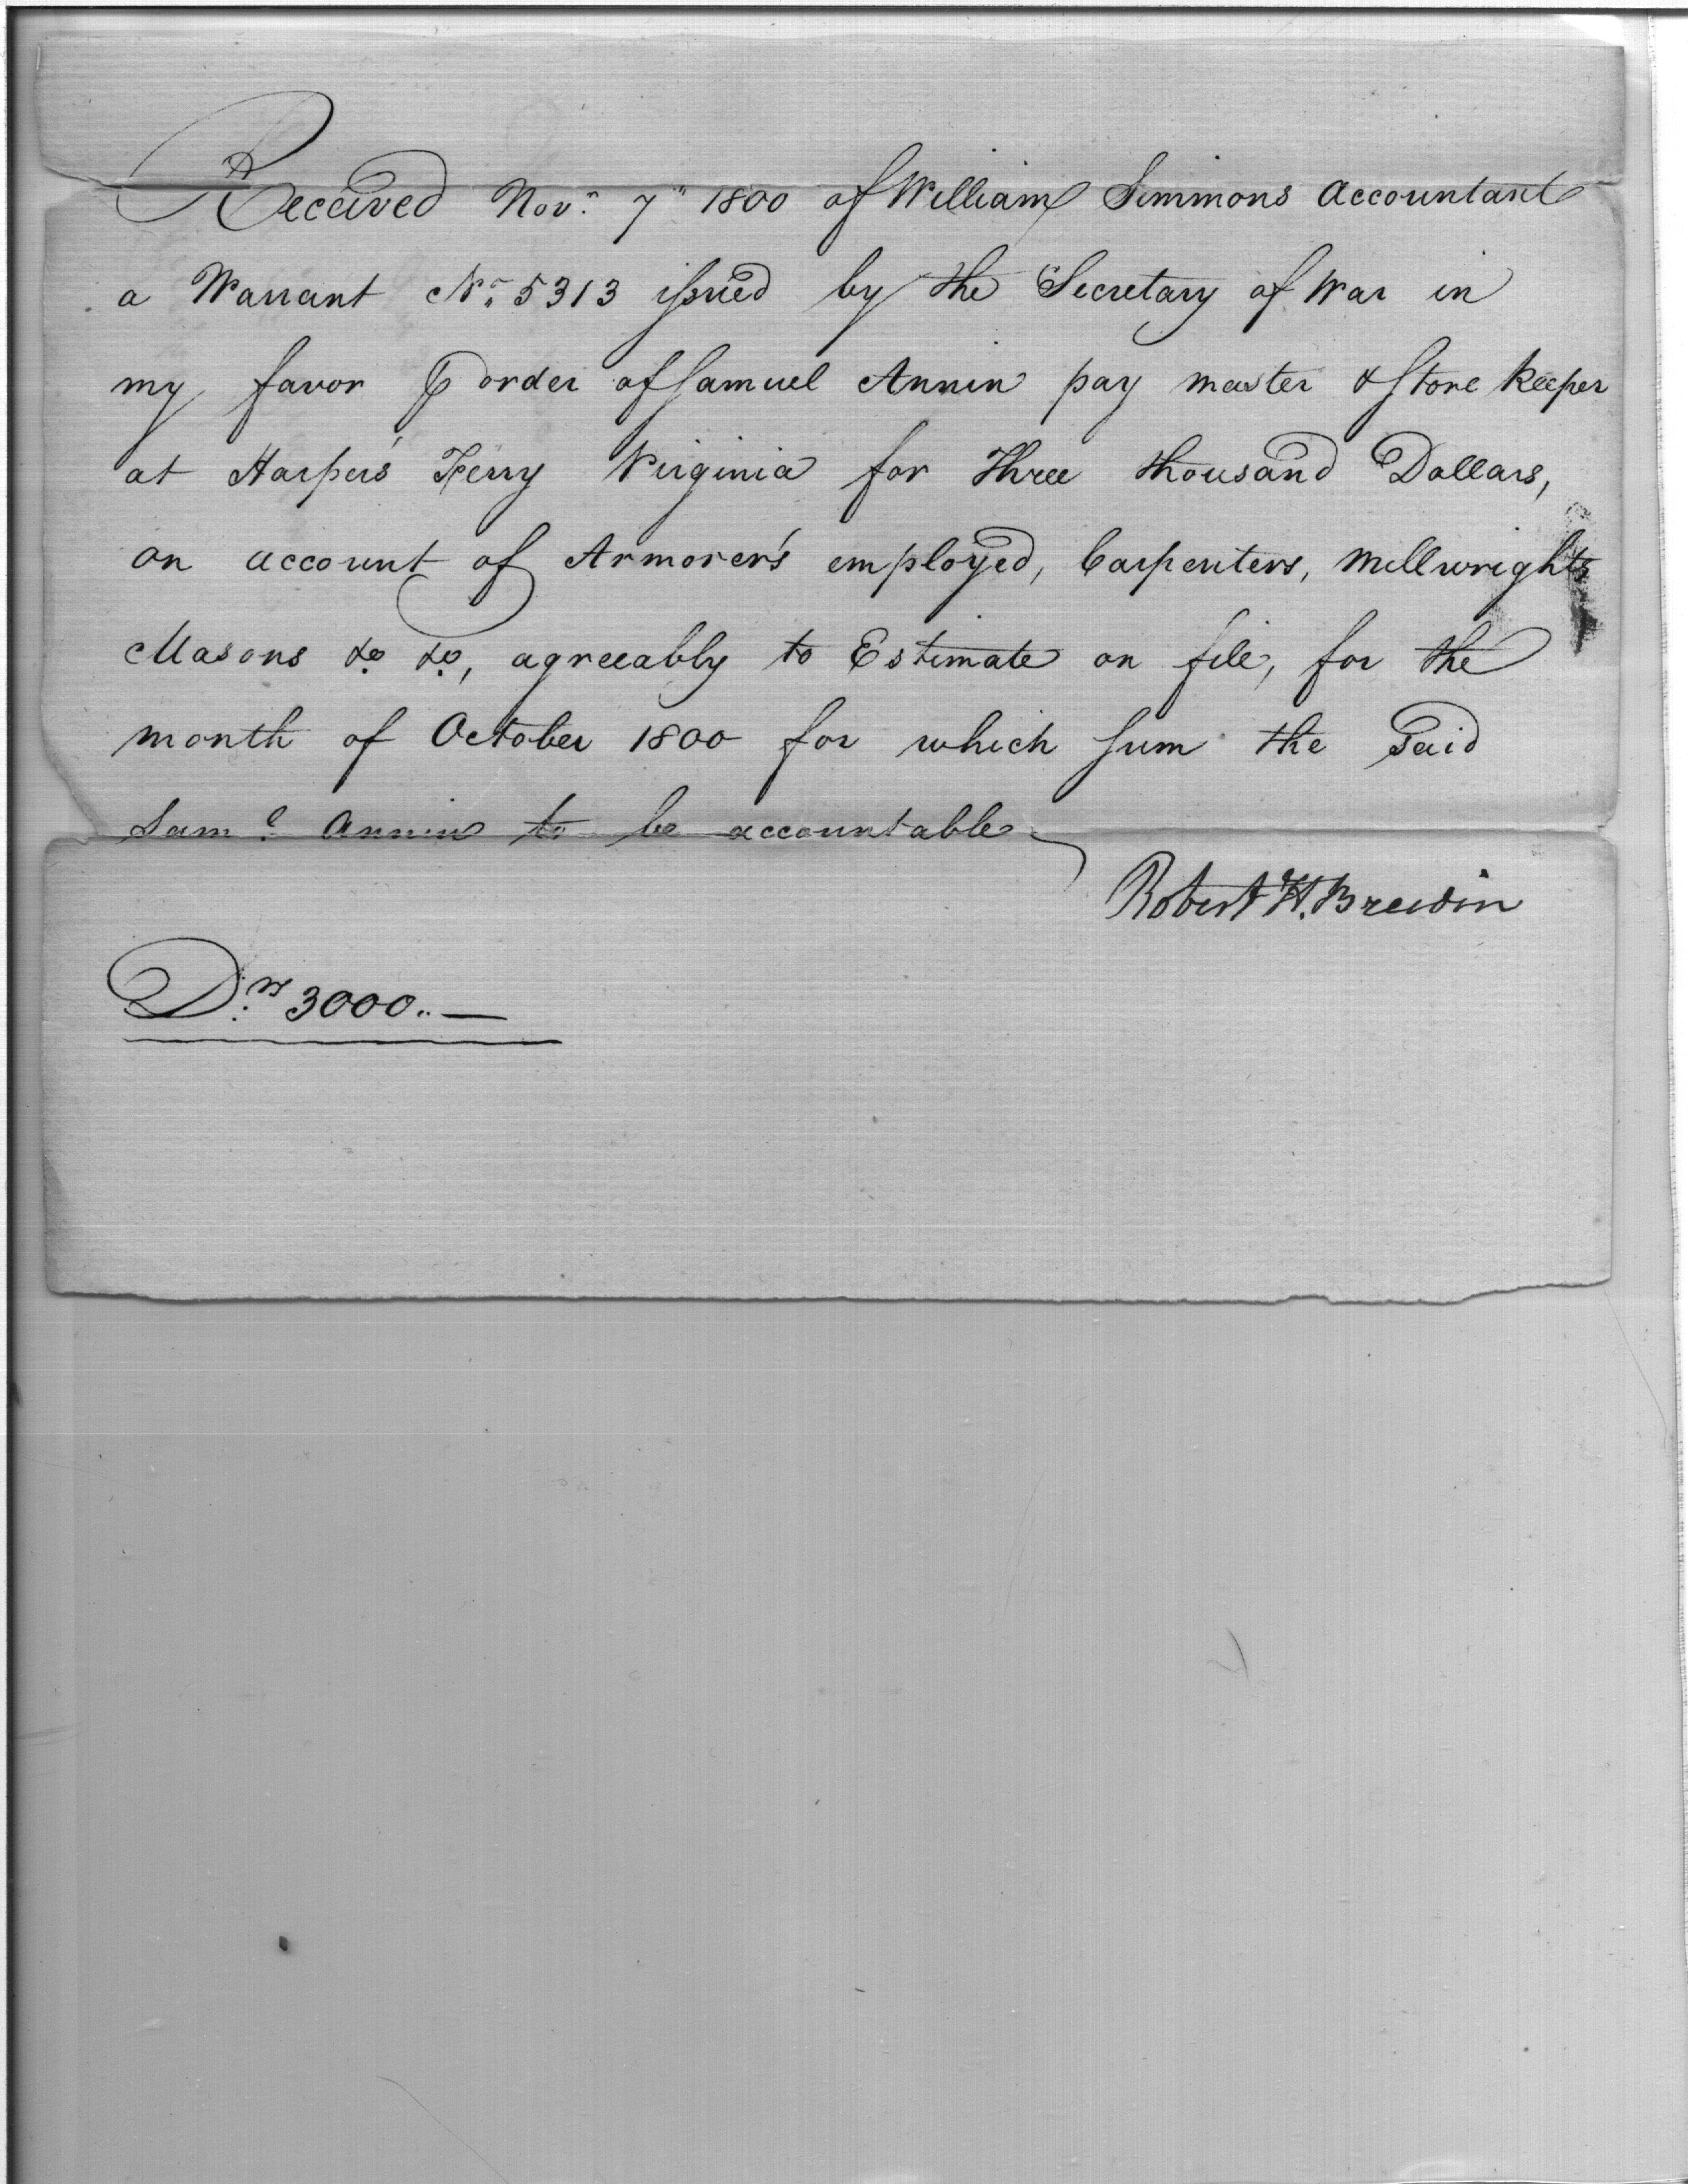 Received Novr. 7" 1800 of William Simmons Accountant
a Warrant No. 5313 issued by the Secretary of War in
my favor ⅌ order of Samuel Annin pay master & Store keeper
at Harper's Ferry Virginia for Three thousand Dollars,
on account of Armorer's employed, Carpenters, Millwrights
Masons &c &c, agreeably to Estimate on file, for the
month of October 1800 for which sum the Said
Saml. Annin to be accountable
Robert H.
Drs. 3000..—